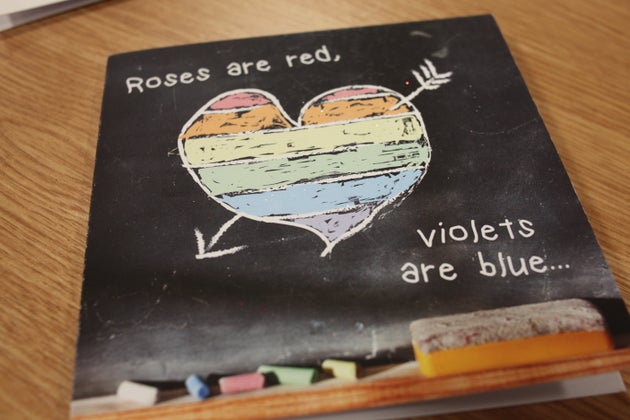 Roses are red,
violets
are blue...